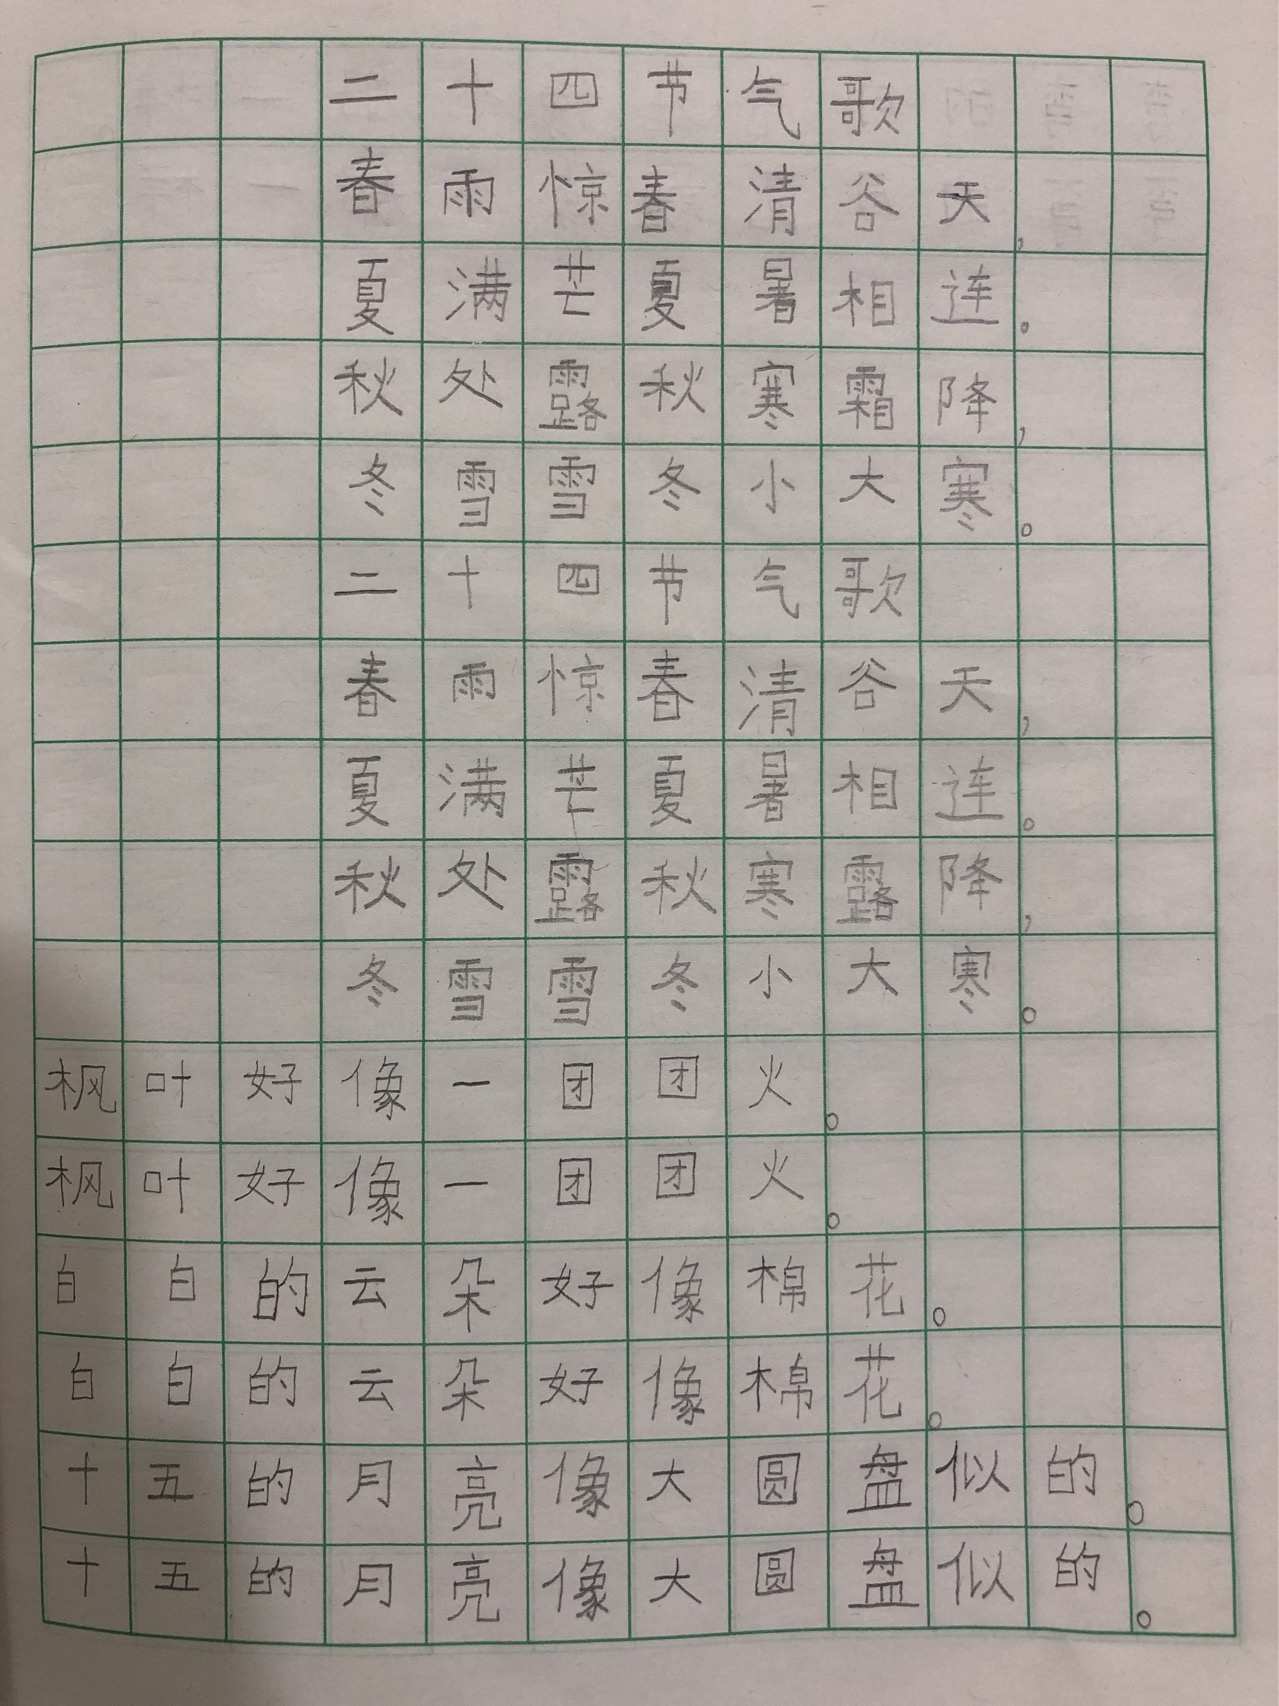 二十四节气歌
春雨惊春清谷天,
夏满芒夏暑相连。
秋处露秋寒霜降,
冬雪雪冬小大寒。
二十四节气歌
春雨惊春清谷天,
夏满芒夏暑相连。
秋处露秋寒露降,
冬雪雪冬小大寒。
枫叶好像一团团火。
枫叶好像一团团火。
白白的云朵好像棉花。
白白的云朵好像棉花。
十五的月亮像大圆盘似的。
十五的月亮像大圆盘似的。